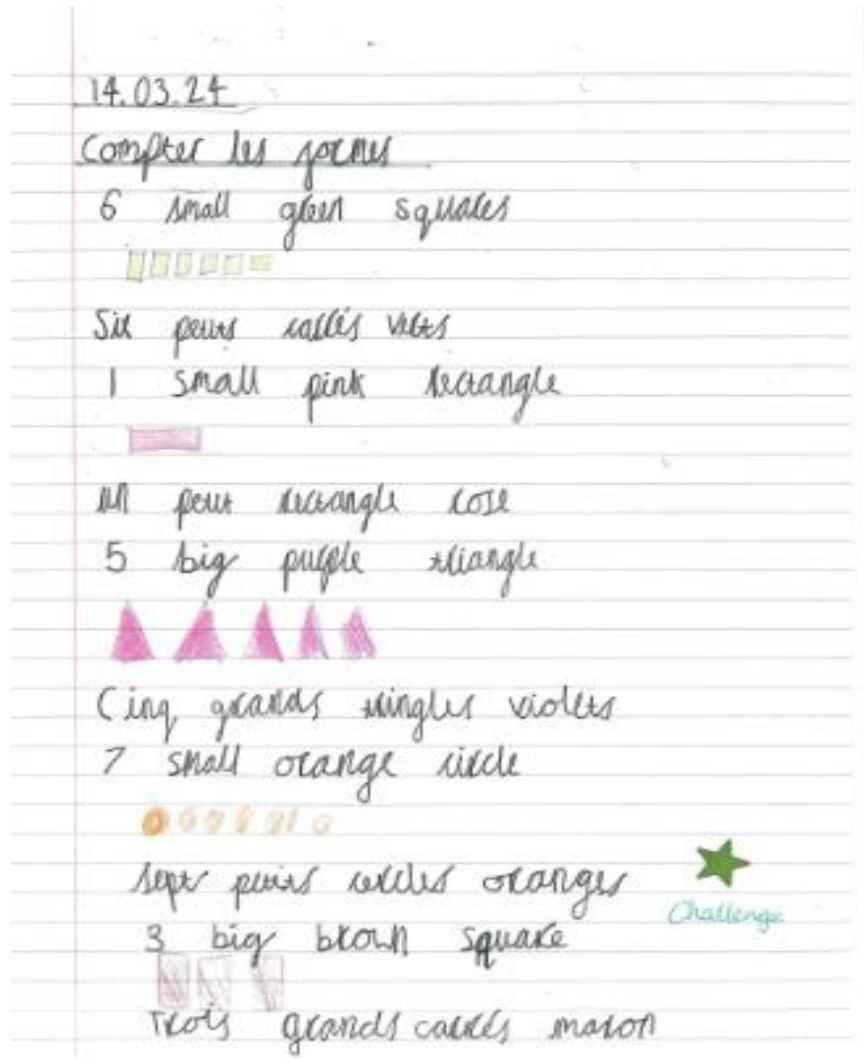 14.03.24
Compter les formes
6 small green squares
Six petits carrés verts
1 small pink rectangle
un petit rectangle rose
5 big purple triangle
Cinq grands tringles violets
7 small orange circle
sept petits cercles oranges
Challenge
3 big brown square
Trois grands carrés maron